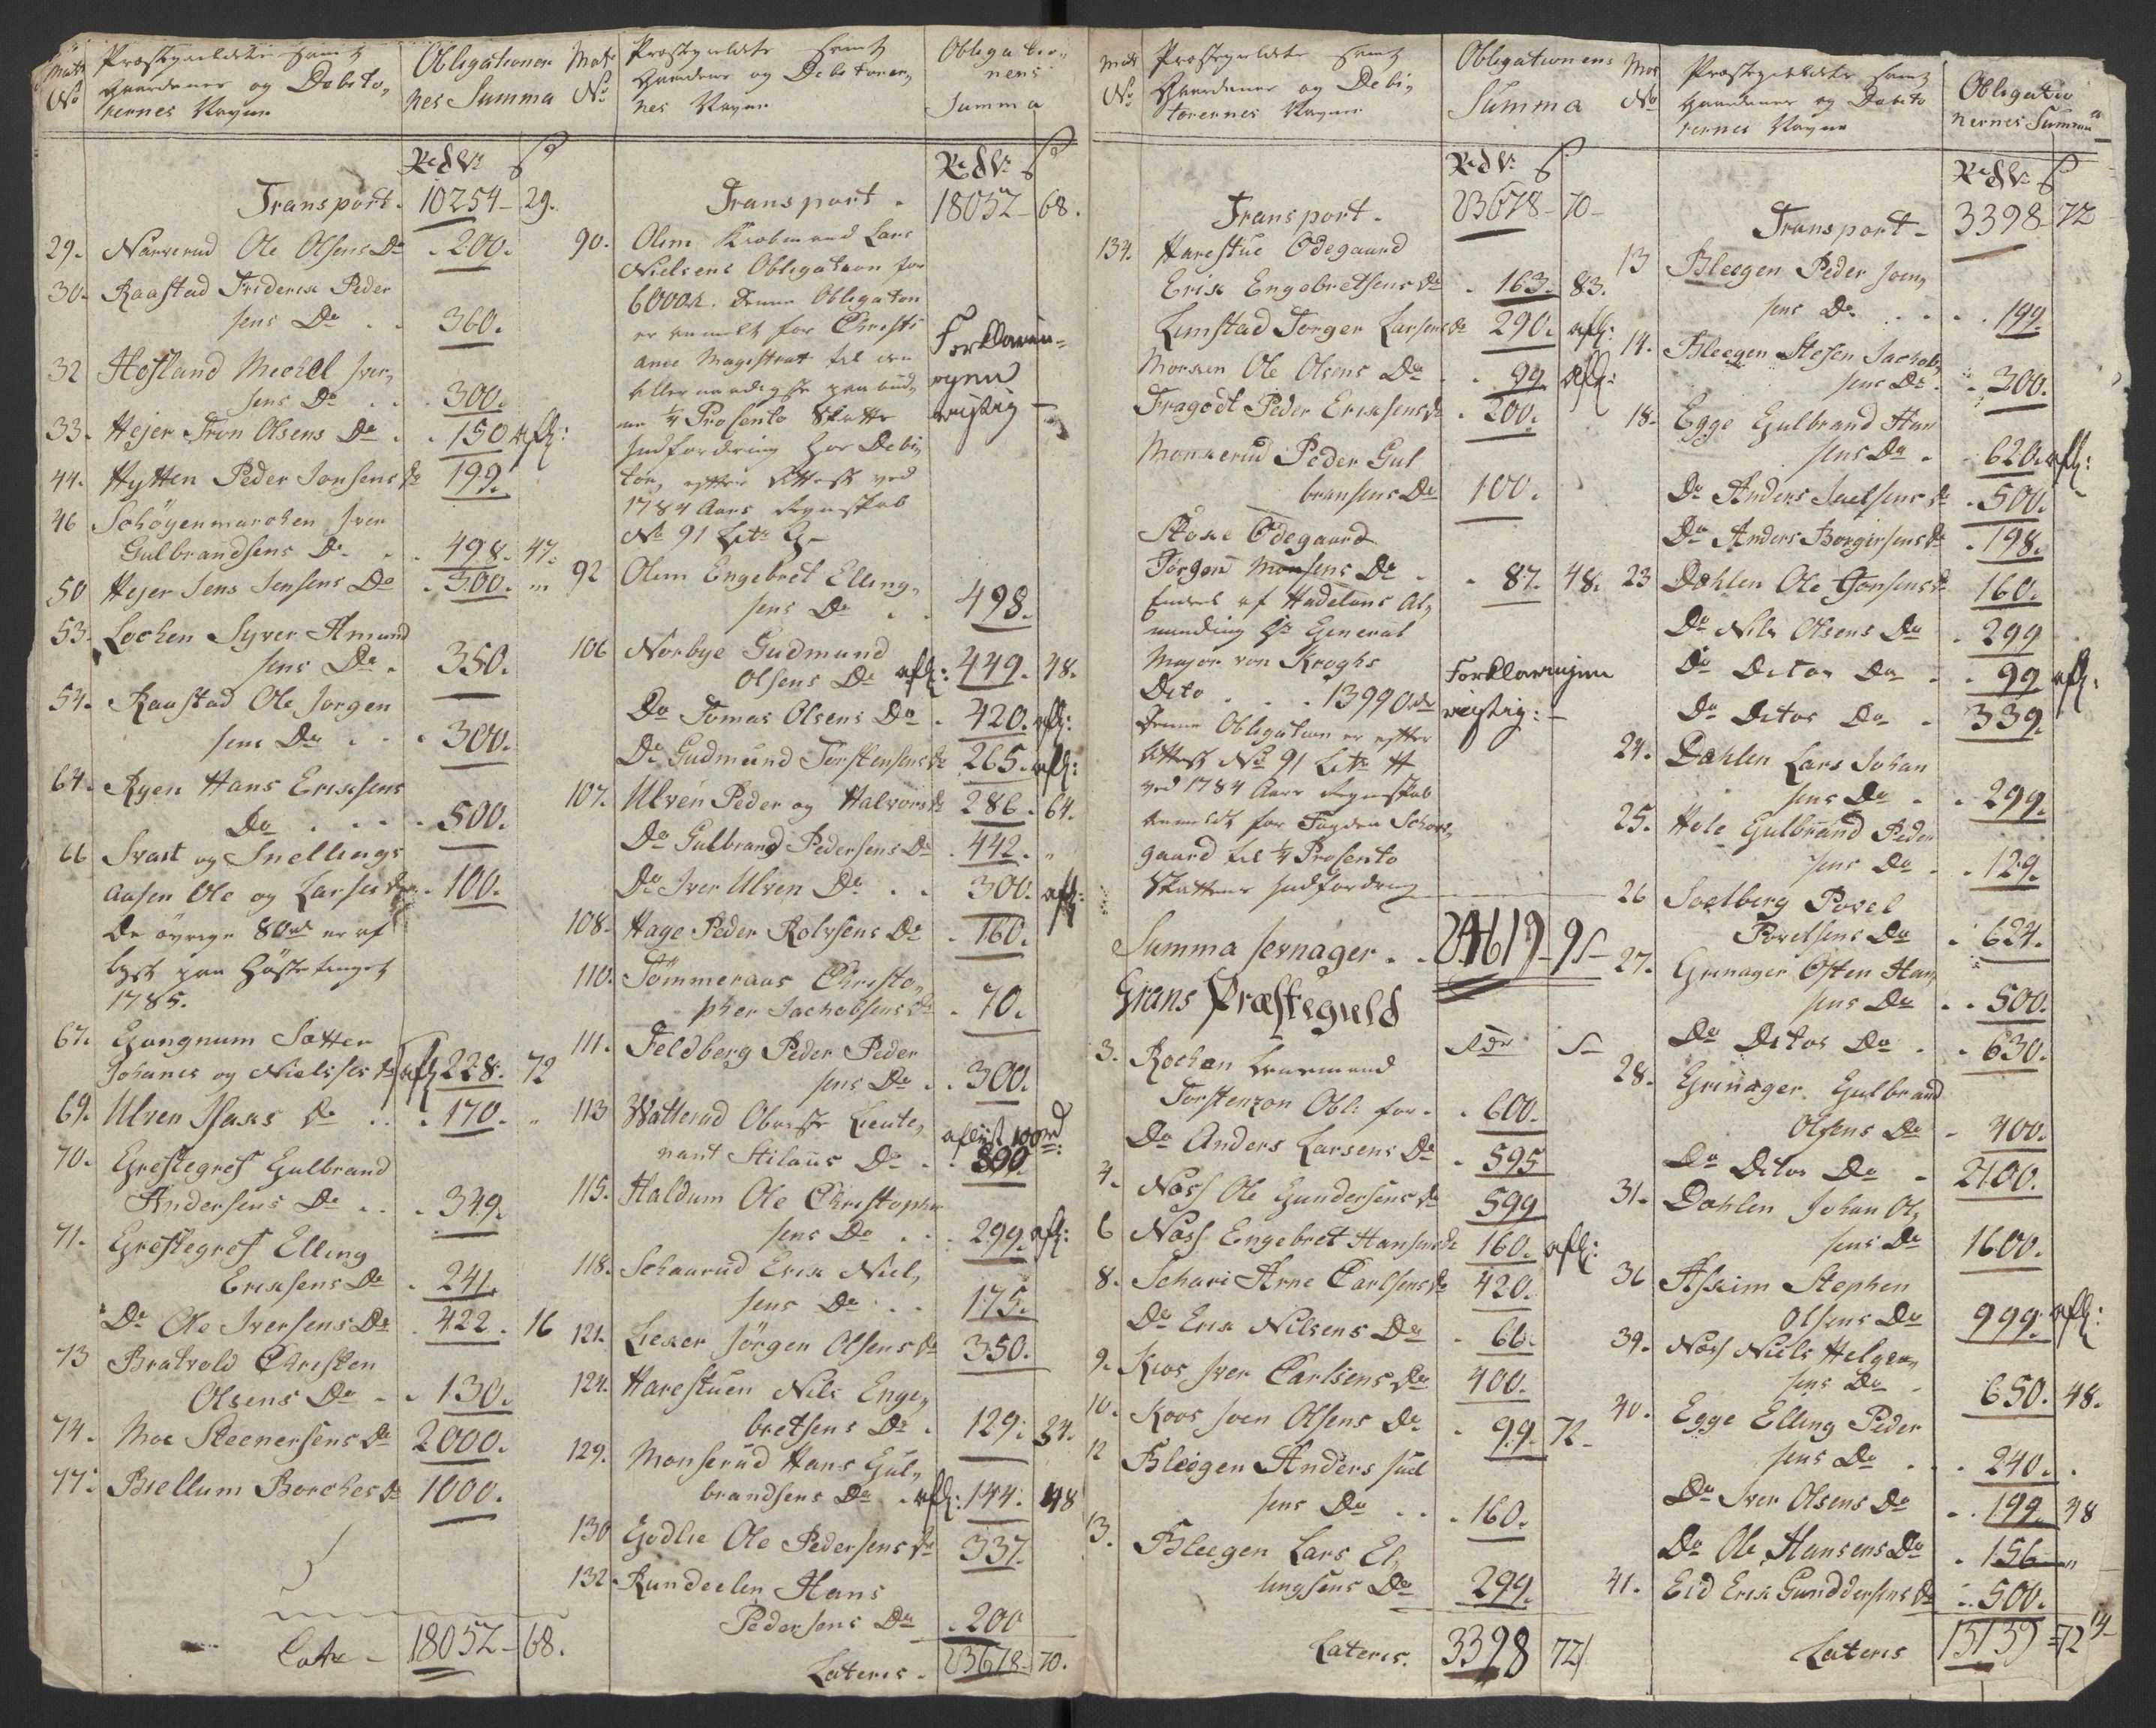 Matr No Præstegieldets samt Gaardenes og Debito, rernes Navne Obligationer nes Summa
Rdr s
Transport. 10254 - 29.
29. Narverud Ole Olsens Do . 200.
30. Raastad Friderix Peder
sens Do . . 360.
32 Hofland Mechel Iver,
sens Do . . 300.
33. Hejer Tron Olsens Do . . 150 afl:
44. Hytten Peder Jonsens Do 199.
46 Schöyenmarchen Iver
Gulbrandsens Do . . 498. 47.
50 Hejer Jens Jensens Do . 300. "
53. Lochen Syver Amund
sens Do . 350.
54. Raastad Ole Jorgen
sens Do . . . 300.
64. Ryen Hans Erixsens
Do . . . . 500.
66 Svart og Snellings
aasen Ole og Larses Do . 100.
De övrige 80 rdr er af
lyst paa Höste tinget
1785.
67. Gangnum Sætter
Johanes og Nielsses Do afl 228. 72
69. Ulven Isaks Do . . . 170. "
70. Grestegref Gulbrand
Andersens Do . . . 349.
71. Grestegref Elling
Erixsens Do . 241.
Do Ole Iversens Do . 422. 16
73 Bratvold Christen
Olsens Do . . 130.
74. Moe Steenersens Do 2000.
77. Biellum Borches Do 1000.
Late - 18052 - 68.
Matr No Præstegieldets samt Gaardenes og Debitorer, nes Navne Obligatio, nens Summa
Rdr s
Transport . 18052 - 68.
90. Olim Kiøbmand Lars
Nielsens Obligation for
6000 rdr. Denne Obligation
er anmelt for Christi
ania Magistrat til den
allernaadigste paabud,
ne 1/4 Prosento Skatts
Indfordring hos Debi,
tor, efter Attest ved
1784 Aars Regnskab
No 91 Litr G -
Forklarin-
gen
rigtig -
92 Olim Engebret Elling,
sens Do . . 498.
106 Norbye Gudmund
Olsens Do afl: 449. 48.
Do Tomas Olsens Do . 420. afl:
Do Gudmund Torstensens Do 265. afl:
107. Ulven Peder og Halvors Do 286. 64.
Do Gulbrand Pedersens Do . 442. "
Do Iver Ulven Do . . 300. afl:
108. Hage Peder Rolvsens Do . 160.
110. Tömmeraas Christo,
pher Jachobsens Do . 70.
111. Feldberg Peder Peder
sens Do . . 300.
113 Watterud Oberste Lieute,
nant Stilaus Do . . 890
aflyst 100 rd:
115. Haldum Ole Christopher
sens Do . . . 299. afl:
118. Schaarud Erix Niel,
sens Do . . 175.
121. Liexer Jörgen Olsens Do 350.
124. Harestuen Nils Enge,
bretsens Do . 129. 24.
129. Monserud Hans Gul,
brandsens Do . afl: 144. 48
130 Godlie Ole Pedersens Do 337.
132. Rundeelen Hans
Pedersens Do . 200
Lateris . 23678 - 70.
Matr No Præstegieldets samt Gaardenes og Debi, torernes Navne Obligationens Summa
Rdr s
Transport - 23678 - 70 -
134. Harestue Ödegaard
Erix Engebretsens Do . 163. 83.
Limstad Torger Larsens Do 290. afl:
Morxen Ole Olsens Do . 99 afl:
Fragodt Peder Erixsens Do . 200.
Monxerud Peder Gul
bransens Do 100.
Stoxe Ödegaard
Jörgen Monsens Do . . 87. 48.
Endeel af Hadelans Al,
munding Hr General
Major von Kroghs
Dito . . . 13990 rdr
Denne Obligation er efter
Attest No 91 Litr H
ved 1784 Aars Regnskab
anmeldt for Fogden Schov,
gaard til 1/4 Prosento
Skattens Indfordring
Forklaringen
rigtig: -
Summa Jevnager . . 24619 - 9 s -
Grans Præstegield
Rdr s
3. Rochen Lensmand
Torstenzon Obl: for . . 600.
Do Anders Larsens Do . 595
4. Næss Ole Gundersens Do 599
6 Næss Engebret Hansens Do 160. afl:
8. Schari Arne Carlsens Do 420.
Do Erix Nilsens Do . 66.
9. Kios Iver Carlsens Do 400.
10. Koos Sven Olsens Do . 99. 72 -
12 Bleegen Anders Juel
sens Do . . . 160.
13. Bleegen Lars El,
lingsens Do 299.
Lateris. 3398 72
Matr No Præstegieldets samt Gaardenes og Debito rernes Navne Obligatio nernes Summa
Rdr s
Transport - 3398 - 72
13 Bleegen Peder Iver,
sens Do . . . . 199.
14. Bleegen Stefen Jachob,
sens Do . . . 300.
18. Egge Gulbrand Han
sens Do . . 620. afl:
Do Anders Juelsens Do . 500.
Do Anders Borgersens Do . 198.
23 Dæhlen Ole Hansens Do 160.
Do Nils Olsens Do . 299
Do Ditos Do . . 99 afl.
Do Ditos Do . . 339.
24. Dæhlen Lars Johan
sens Do . . 299.
25. Hole Gulbrand Peder
sens Do . . 129.
26 Soelberg Povel
Povelsens Do . 624.
27. Grinager Osten Han,
sens Do . . 500.
Do Ditos Do . . 630.
28. Grinager. Gulbrand
Olsens Do . 400.
Do Ditos Do . 2100.
31. Dæhlen Johan Ol,
sens Do 1600.
36 Askim Stephen
Olsens Do 999. afl:
39. Næss Niels Helge,
sens Do . 650. 48.
40. Egge Elling Peder
sens Do . . . 240. .
Do Iver Olsens Do . . 199. 48
Do Ole Hansens Do . 156 - "
41. Eid Erix Gunddersens Do . . 500.
Lateris 15139 - 72